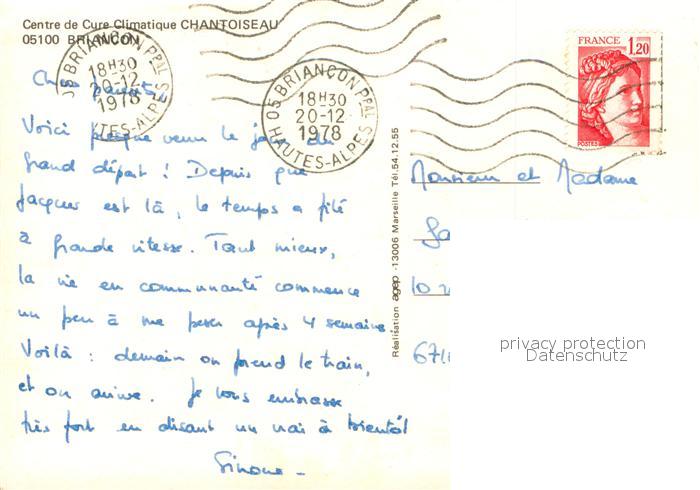 Centre de Cure Climatique CHANTOISEAU
05100 BRIANÇON
05 BRIANÇON Ppal
18H30
20-12
1978
HAUTES-ALPES
05 BRIANÇON Ppal
18H30
20-12
1978
HAUTES-ALPES
FRANCE 1,20
POSTES
Chers parents
Voici presque venu le jour du
grand départ ! Depuis que
Jacques est là, le temps a filé
à grande vitesse. Tant mieux,
la vie en communauté commence
un peu à me peser après 4 semaines.
Voilà : demain on prend le train,
et on arrive. Je vous embrasse
très fort en disant un vrai à bientôt
Simone -
Réalisation agep - 13006 Marseille Tél. 54.12.55
Monsieur et Madame
10
671
privacy protection
Datenschutz